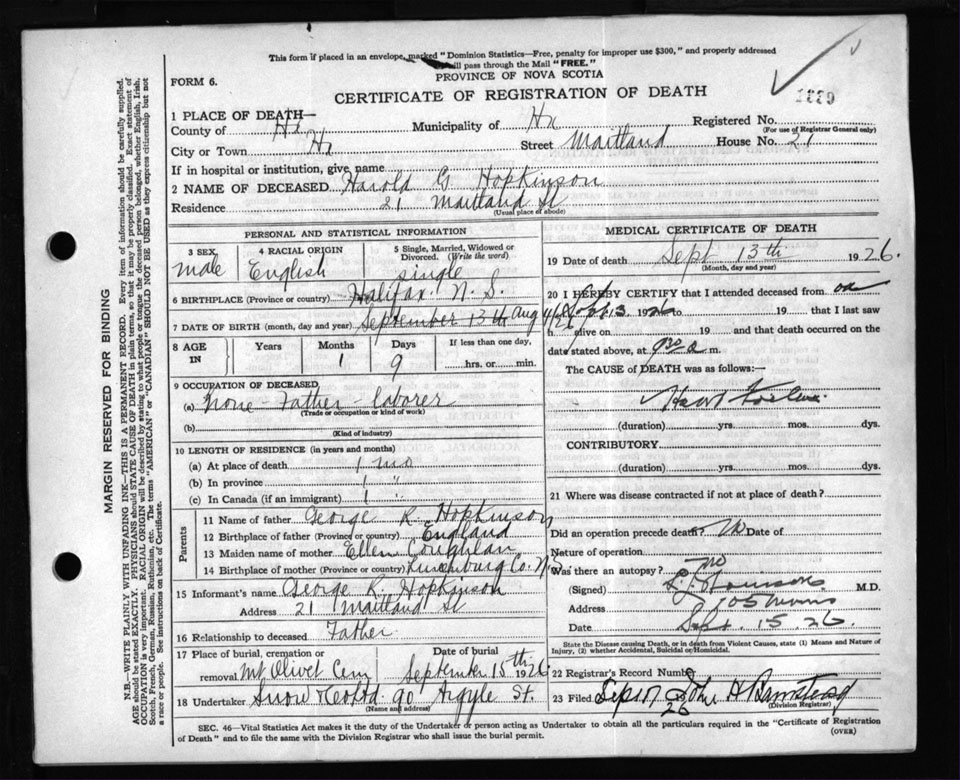 This form if placed in an envelope, marked "Dominion Statistics—Free, penalty for improper use $300," and properly addressed
will pass through the Mail "FREE."
FORM 6.
PROVINCE OF NOVA SCOTIA
CERTIFICATE OF REGISTRATION OF DEATH
1 PLACE OF DEATH—
County of Hx. Municipality of Hx Registered No.
(For use of Registrar General only)
City or Town Hx Street Maitland House No. 21
If in hospital or institution, give name
2 NAME OF DECEASED Harold G Hopkinson
Residence 21 Maitland St
(Usual place of abode)
PERSONAL AND STATISTICAL INFORMATION
3 SEX male
4 RACIAL ORIGIN English
5 Single, Married, Widowed or Divorced. (Write the word) single
6 BIRTHPLACE (Province or country) Halifax N. S.
7 DATE OF BIRTH (month, day and year) September 13th Aug 4/26
8 AGE IN
Years Months Days If less than one day,
1 9 hrs. or min.
9 OCCUPATION OF DECEASED
(a) None - Father - laborer
(Trade or occupation or kind of work)
(b)
(Kind of industry)
10 LENGTH OF RESIDENCE (in years and months)
(a) At place of death 1 mo
(b) In province 1 "
(c) In Canada (if an immigrant) 1
Parents
11 Name of father George R. Hopkinson
12 Birthplace of father (Province or country) England
13 Maiden name of mother Ellen Coughlan
14 Birthplace of mother (Province or country) Lunenburg Co. N.S.
15 Informant's name George R. Hopkinson
Address 21 Maitland St
16 Relationship to deceased Father
17 Place of burial, cremation or removal Mt Olivet Cem
Date of burial September 15th 1926
18 Undertaker Snow & Co Ltd. 90 Argyle St.
(Name and address)
MEDICAL CERTIFICATE OF DEATH
19 Date of death Sept 13th 1926.
(Month, day and year)
20 I HEREBY CERTIFY that I attended deceased from on
Sept 13 1926 to 19 that I last saw
h alive on 19 and that death occurred on the
date stated above, at 9 30 a m.
The CAUSE of DEATH was as follows:—
Heart Failure
(duration) yrs. mos. dys.
CONTRIBUTORY
(duration) yrs. mos. dys.
21 Where was disease contracted if not at place of death?
Did an operation precede death? No Date of
Nature of operation
Was there an autopsy? no
(Signed) M.D.
Address 105 Morris
Date Sept. 15. 26
State the Disease causing Death, or in Death from Violent Causes, state (1) Means and Nature of
Injury, (2) whether Accidental, Suicidal or Homicidal.
22 Registrar's Record Number
23 Filed Sep 17 26 John H Barnstead
(Division Registrar)
SEC. 46—Vital Statistics Act makes it the duty of the Undertaker or person acting as Undertaker to obtain all the particulars required in the "Certificate of Registration
of Death" and to file the same with the Division Registrar who shall issue the burial permit.
(OVER)
MARGIN RESERVED FOR BINDING
N.B.—WRITE PLAINLY WITH UNFADING INK—THIS IS A PERMANENT RECORD. Every item of information should be carefully supplied.
AGE should be stated EXACTLY. PHYSICIANS should STATE CAUSE OF DEATH in plain terms, so that it may be properly classified. Exact statement of
OCCUPATION is very important. RACIAL ORIGIN will be described by stating to what people or tongue the deceased person belonged, whether English, Irish,
Scotch, French, German, Russian, Ruthenian, etc. The terms "AMERICAN" or "CANADIAN" SHOULD NOT BE USED as they express citizenship but not
a race or people. See instructions on back of Certificate.